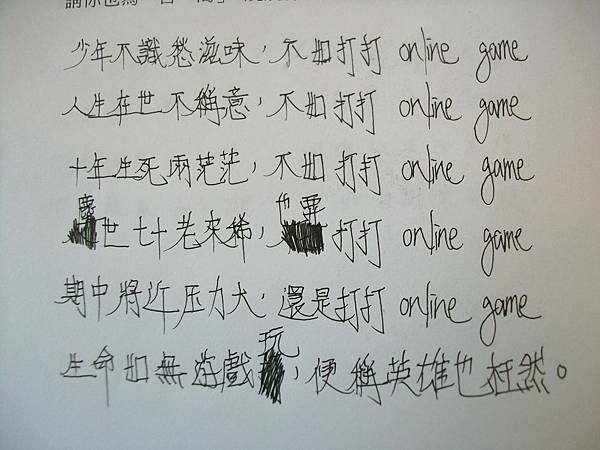 少年不識愁滋味，不如打打 online game
人生在世不稱意，不如打打 online game
十年生死兩茫茫，不如打打 online game
塵世七十老來稀，也要打打 online game
期中將近压力大，還是打打 online game
生命如無遊戲玩，便稱英雄也枉然。